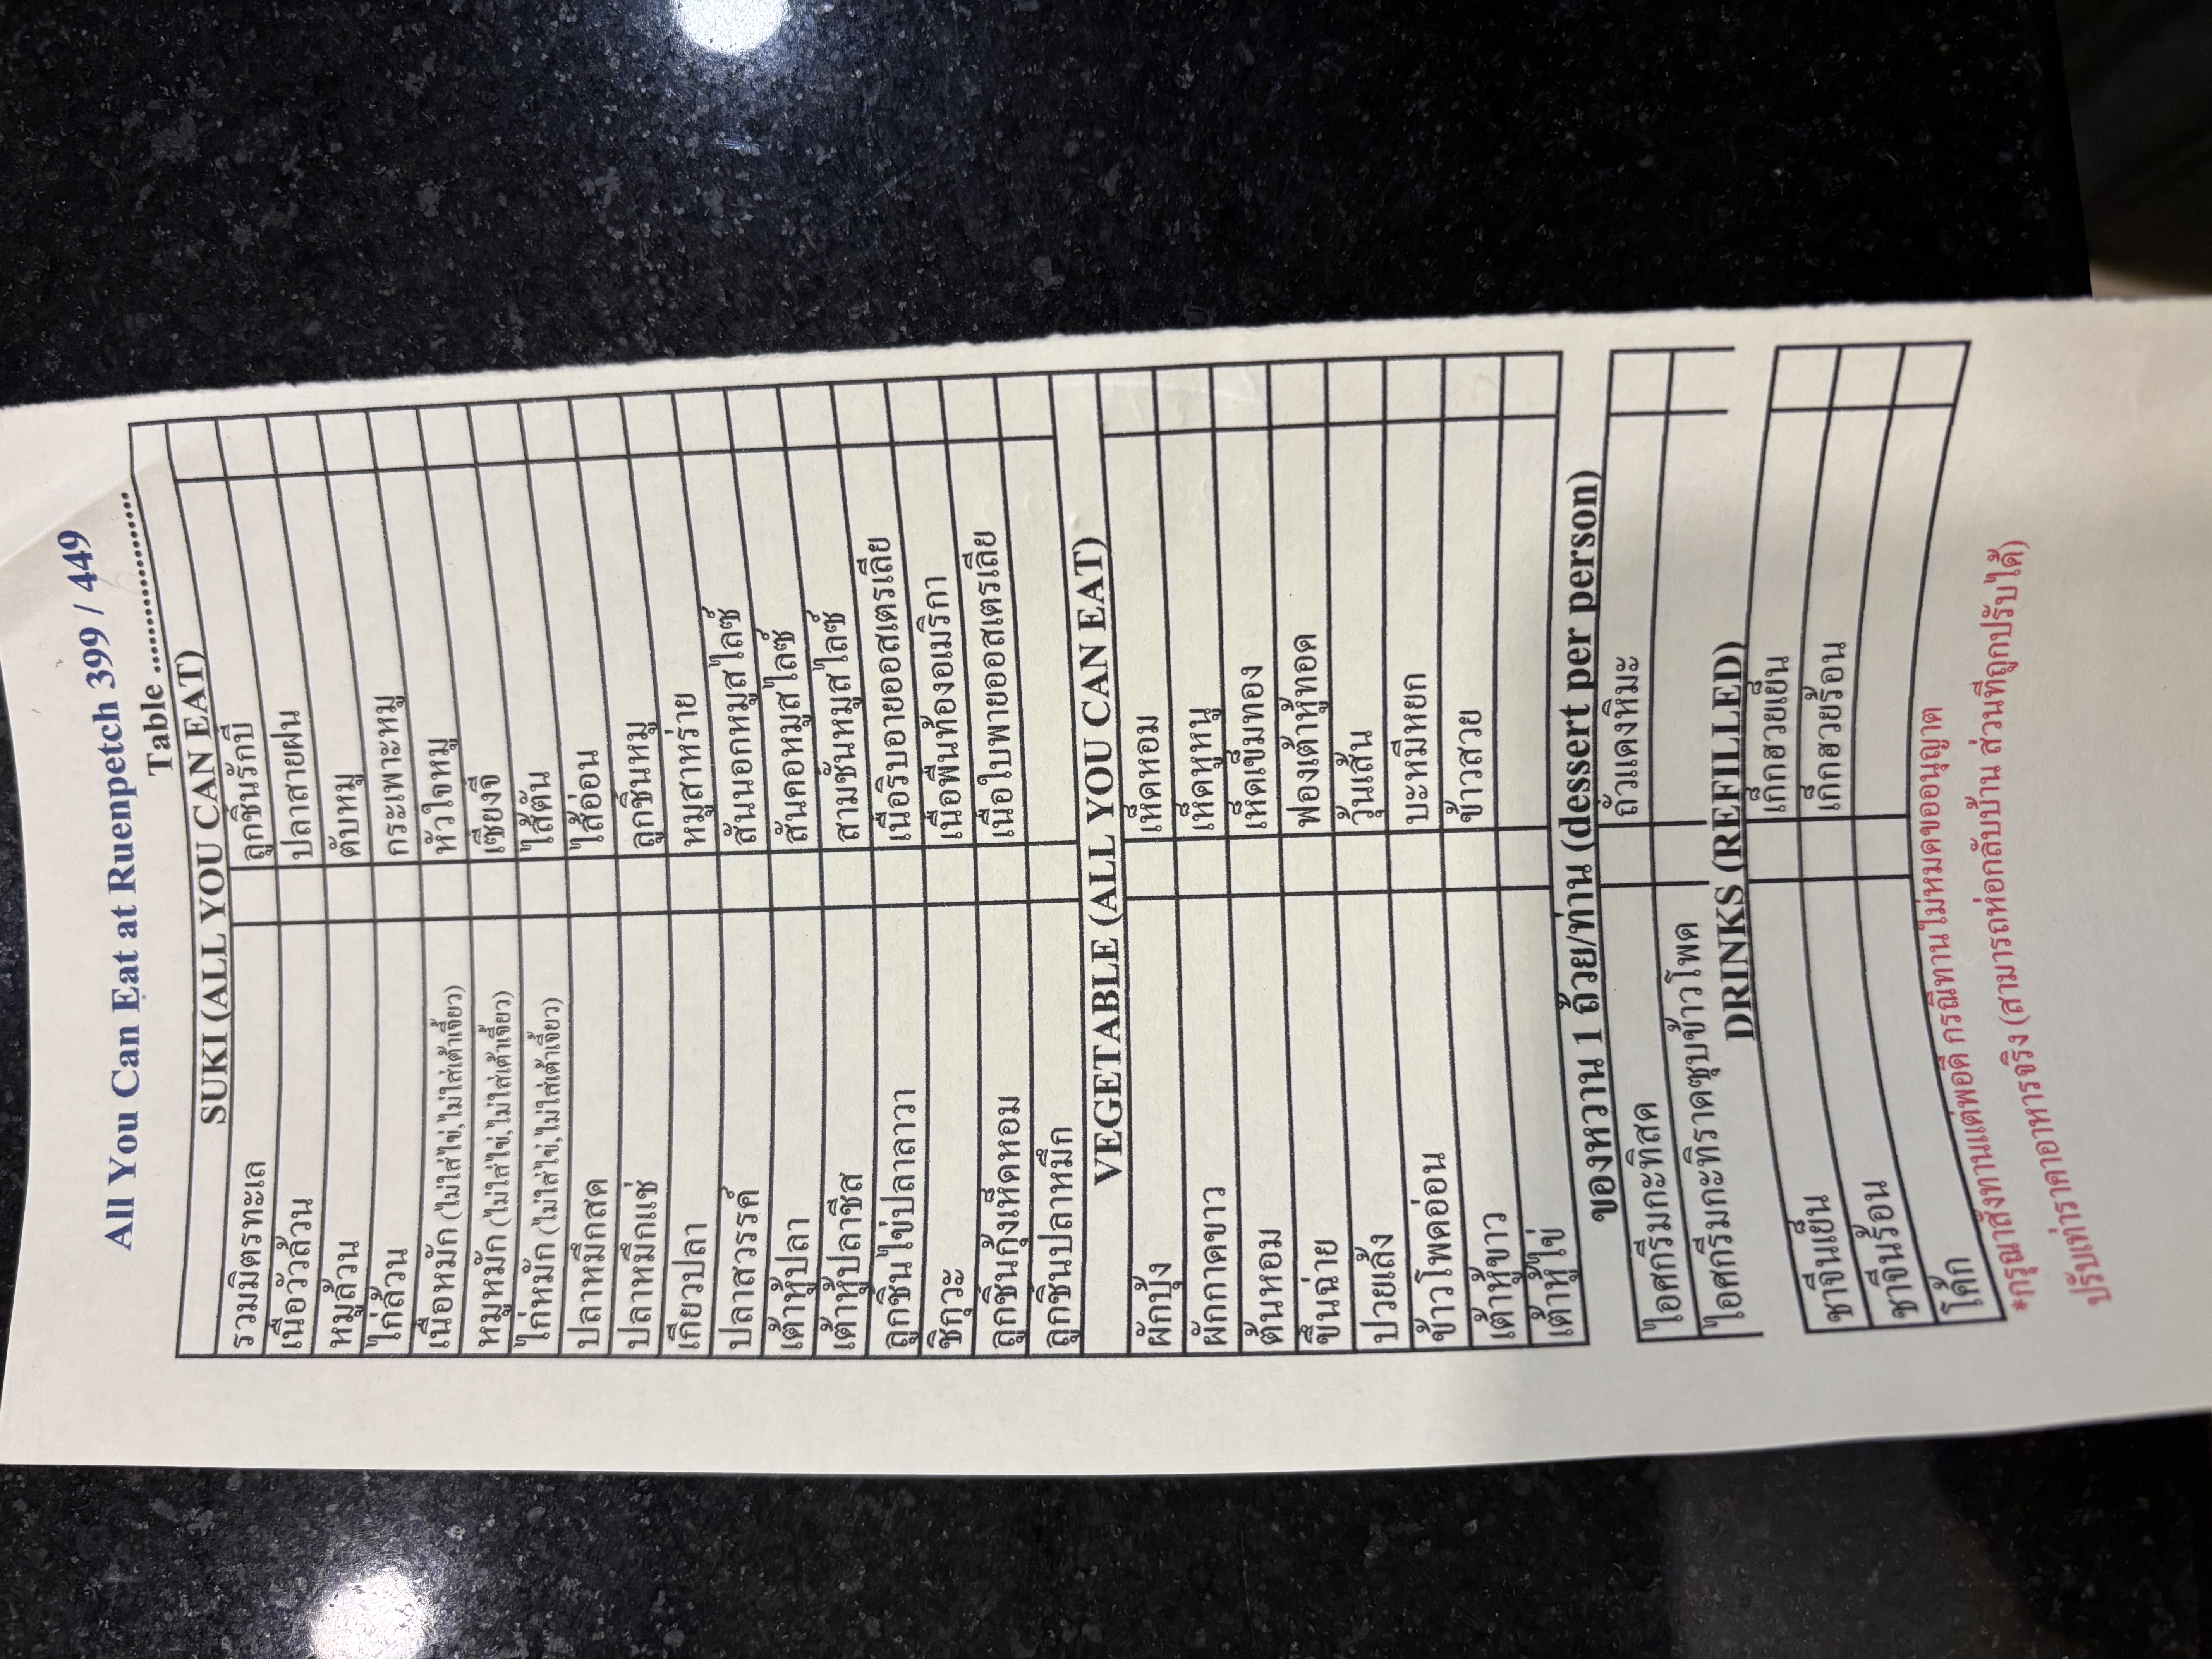 All You Can Eat at Ruenpetch 399 / 449
Table ..............................
SUKI (ALL YOU CAN EAT)
รวมมิตรทะเล ลูกชิ้นรักบี้
เนื้อวัวล้วน ปลาสายฝน
หมูล้วน ตับหมู
ไก่ล้วน กระเพาะหมู
เนื้อหมัก (ไม่ใส่ไข่,ไม่ใส่เต้าเจี้ยว) หัวใจหมู
หมูหมัก (ไม่ใส่ไข่,ไม่ใส่เต้าเจี้ยว) เซี่ยงจี๊
ไก่หมัก (ไม่ใส่ไข่,ไม่ใส่เต้าเจี้ยว) ไส้ตัน
ปลาหมึกสด ไส้อ่อน
ปลาหมึกแช่ ลูกชิ้นหมู
เกี๊ยวปลา หมูสาหร่าย
ปลาสวรรค์ สันนอกหมูสไลซ์
เต้าหู้ปลา สันคอหมูสไลซ์
เต้าหู้ปลาชีส สามชั้นหมูสไลซ์
ลูกชิ้นไข่ปลาลาวา เนื้อริบอายออสเตรเลีย
ชิกุวะ เนื้อพื้นท้องอเมริกา
ลูกชิ้นกุ้งเห็ดหอม เนื้อใบพายออสเตรเลีย
ลูกชิ้นปลาหมึก
VEGETABLE (ALL YOU CAN EAT)
ผักบุ้ง เห็ดหอม
ผักกาดขาว เห็ดหูหนู
ต้นหอม เห็ดเข็มทอง
ขึ้นฉ่าย ฟองเต้าหู้ทอด
ปวยเล้ง วุ้นเส้น
ข้าวโพดอ่อน บะหมี่หยก
เต้าหู้ขาว ข้าวสวย
เต้าหู้ไข่
ของหวาน 1 ถ้วย/ท่าน (dessert per person)
ไอศกรีมกะทิสด ถั่วแดงหิมะ
ไอศกรีมกะทิราดซุปข้าวโพด
DRINKS (REFILLED)
ชาจีนเย็น เก๊กฮวยเย็น
ชาจีนร้อน เก๊กฮวยร้อน
โค้ก
*กรุณาสั่งทานแต่พอดี กรณีทานไม่หมดขออนุญาต
ปรับเท่าราคาอาหารจริง (สามารถห่อกลับบ้าน ส่วนที่ถูกปรับได้)